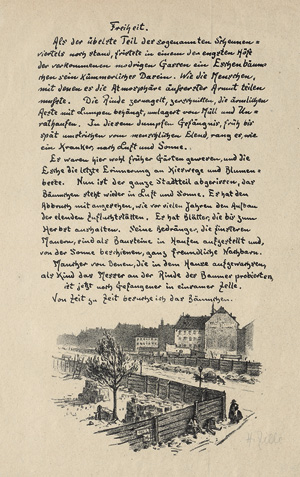 Freiheit.
Als der übelste Teil des sogenannten Scheunen=
viertels noch stand, fristete in einem den engsten Höfe
der verkommenen modrigen Gassen ein Eschenbäum=
chen sein kümmerliches Dasein. Wie die Menschen,
mit denen es die Atmosphäre äußerster Armut teilen
mußte. Die Rinde zernagelt, zerschnitten, die ärmlichen
Aeste mit Lumpen behängt, umlagert von Müll und Un=
rathaufen. In diesem dumpfen Gefängnis, früh bis
spät umstrichen vom menschlichen Elend, rang es, wie
ein Kranker, nach Luft und Sonne.
Es waren hier wohl früher Gärten gewesen, und die
Esche die letzte Erinnerung an Kieswege und Blumen=
beete. Nun ist der ganze Stadtteil abgerissen, das
Bäumchen steht wieder in Luft und Sonne. Es hat den
Abbruch mit angesehen, wie vor vielen Jahren den Aufbau
der elenden Zufluchtstätten. Er hat Blätter, die bis zum
Herbst aushalten. Seine Bedränger, die finsteren
Mauern, sind als Bausteine in Haufen aufgestellt und,
von der Sonne beschienen, ganz freundliche Nachbarn.
Mancher von denen, die in dem Hause aufgewachsen,
als Kind das Messer an der Rinde des Baumes probierten,
ist jetzt noch Gefangener in einsamer Zelle.
Von Zeit zu Zeit besuche ich das Bäumchen.
H. Zille